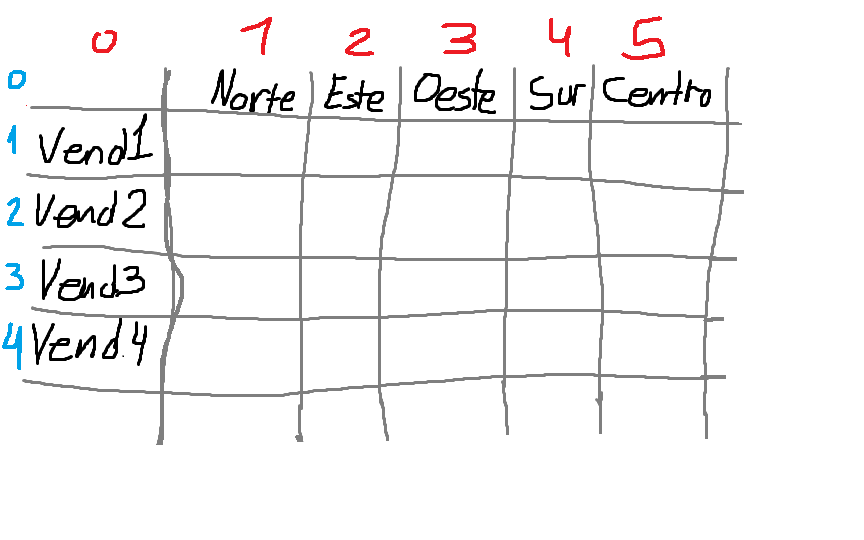 0 1 2 3 4 5
0 Norte Este Oeste Sur Centro
1 Vend1
2 Vend2
3 Vend.3
4 Vend.4